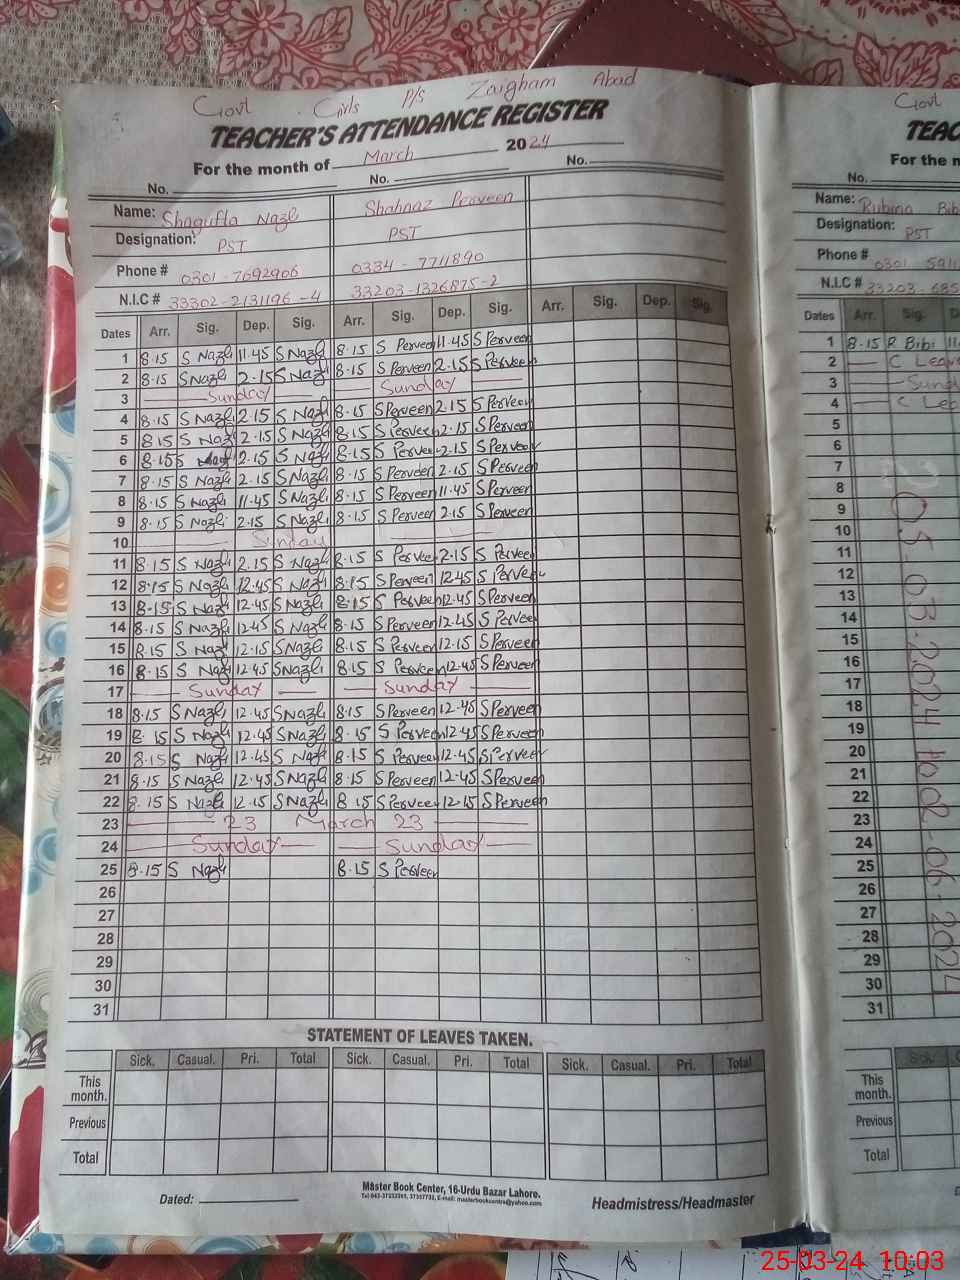 Govt. Girls P/s Zaigham Abad
TEACHER'S ATTENDANCE REGISTER
For the month of March 2024
No. No. No.
Name: Shagufta Nazli Shahnaz Perveen
Designation: PST PST
Phone # 0301-7692906 0334-7711890
N.I.C # 33302-2131196-4 33203-1326875-2
Dates Arr. Sig. Dep. Sig. Arr. Sig. Dep. Sig. Arr. Sig. Dep. Sig.
1 8.15 S Nazli 11.45 S Nazli 8.15 S Perveen 11.45 S Perveen
2 8.15 S Nazli 2.15 S Nazli 8.15 S Perveen 2.15 S Perveen
3 Sunday Sunday
4 8.15 S Nazli 2.15 S Nazli 8.15 S Perveen 2.15 S Perveen
5 8.15 S Nazli 2.15 S Nazli 8.15 S Perveen 2.15 S Perveen
6 8.15 S Nazli 2.15 S Nazli 8.15 S Perveen 2.15 S Perveen
7 8.15 S Nazli 2.15 S Nazli 8.15 S Perveen 2.15 S Perveen
8 8.15 S Nazli 11.45 S Nazli 8.15 S Perveen 11.45 S Perveen
9 8.15 S Nazli 2.15 S Nazli 8.15 S Perveen 2.15 S Perveen
10 Sunday
11 8.15 S Nazli 2.15 S Nazli 8.15 S Perveen 2.15 S Perveen
12 8.15 S Nazli 12.45 S Nazli 8.15 S Perveen 12.45 S Perveen
13 8.15 S Nazli 12.45 S Nazli 8.15 S Perveen 12.45 S Perveen
14 8.15 S Nazli 12.45 S Nazli 8.15 S Perveen 12.45 S Perveen
15 8.15 S Nazli 12.15 S Nazli 8.15 S Perveen 12.15 S Perveen
16 8.15 S Nazli 12.45 S Nazli 8.15 S Perveen 12.45 S Perveen
17 Sunday Sunday
18 8.15 S Nazli 12.45 S Nazli 8.15 S Perveen 12.45 S Perveen
19 8.15 S Nazli 12.45 S Nazli 8.15 S Perveen 12.45 S Perveen
20 8.15 S Nazli 12.45 S Nazli 8.15 S Perveen 12.45 S Perveen
21 8.15 S Nazli 12.45 S Nazli 8.15 S Perveen 12.45 S Perveen
22 8.15 S Nazli 12.15 S Nazli 8.15 S Perveen 12.15 S Perveen
23 23 March 23
24 Sunday Sunday
25 8.15 S Nazli 8.15 S Perveen
26
27
28
29
30
31
STATEMENT OF LEAVES TAKEN.
Sick. Casual. Pri. Total Sick. Casual. Pri. Total Sick. Casual. Pri. Total
This month.
Previous
Total
Master Book Center, 16-Urdu Bazar Lahore.
Dated: Headmistress/Headmaster
Govt
TEAC
For the m
No.
Name: Rubina Bib
Designation: PST
Phone # 0301 5911
N.I.C # 33203-685
Dates Arr. Sig. D
1 8.15 R Bibi 11.
2 C Leav
3 Sund
4 C Lea
5
6
7
8
9
10
11
12
13
14
15
16
17
18
19
20
21
22
23
24
25
26
27
28
29
30
31
05-03-2024 to 02-06-2024
Sick. C
This month.
Previous
Total
25-03-24 10:03